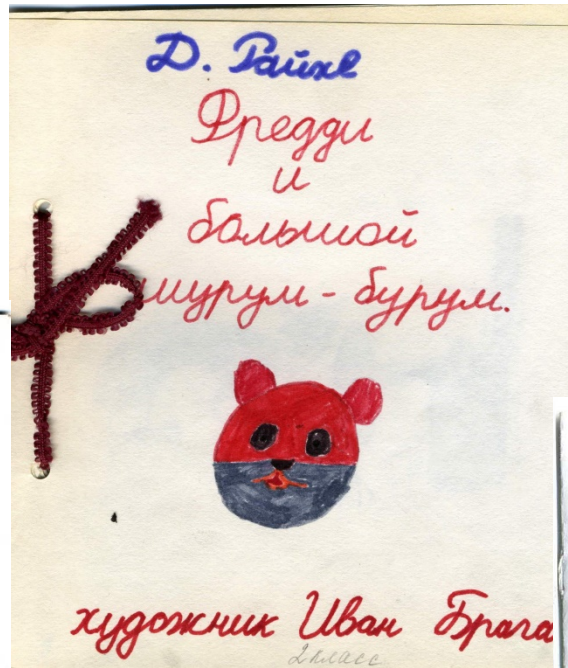 Д. Райхе
Фредди
и
большой
шурум - бурум.
художник Иван Брага
2 класс